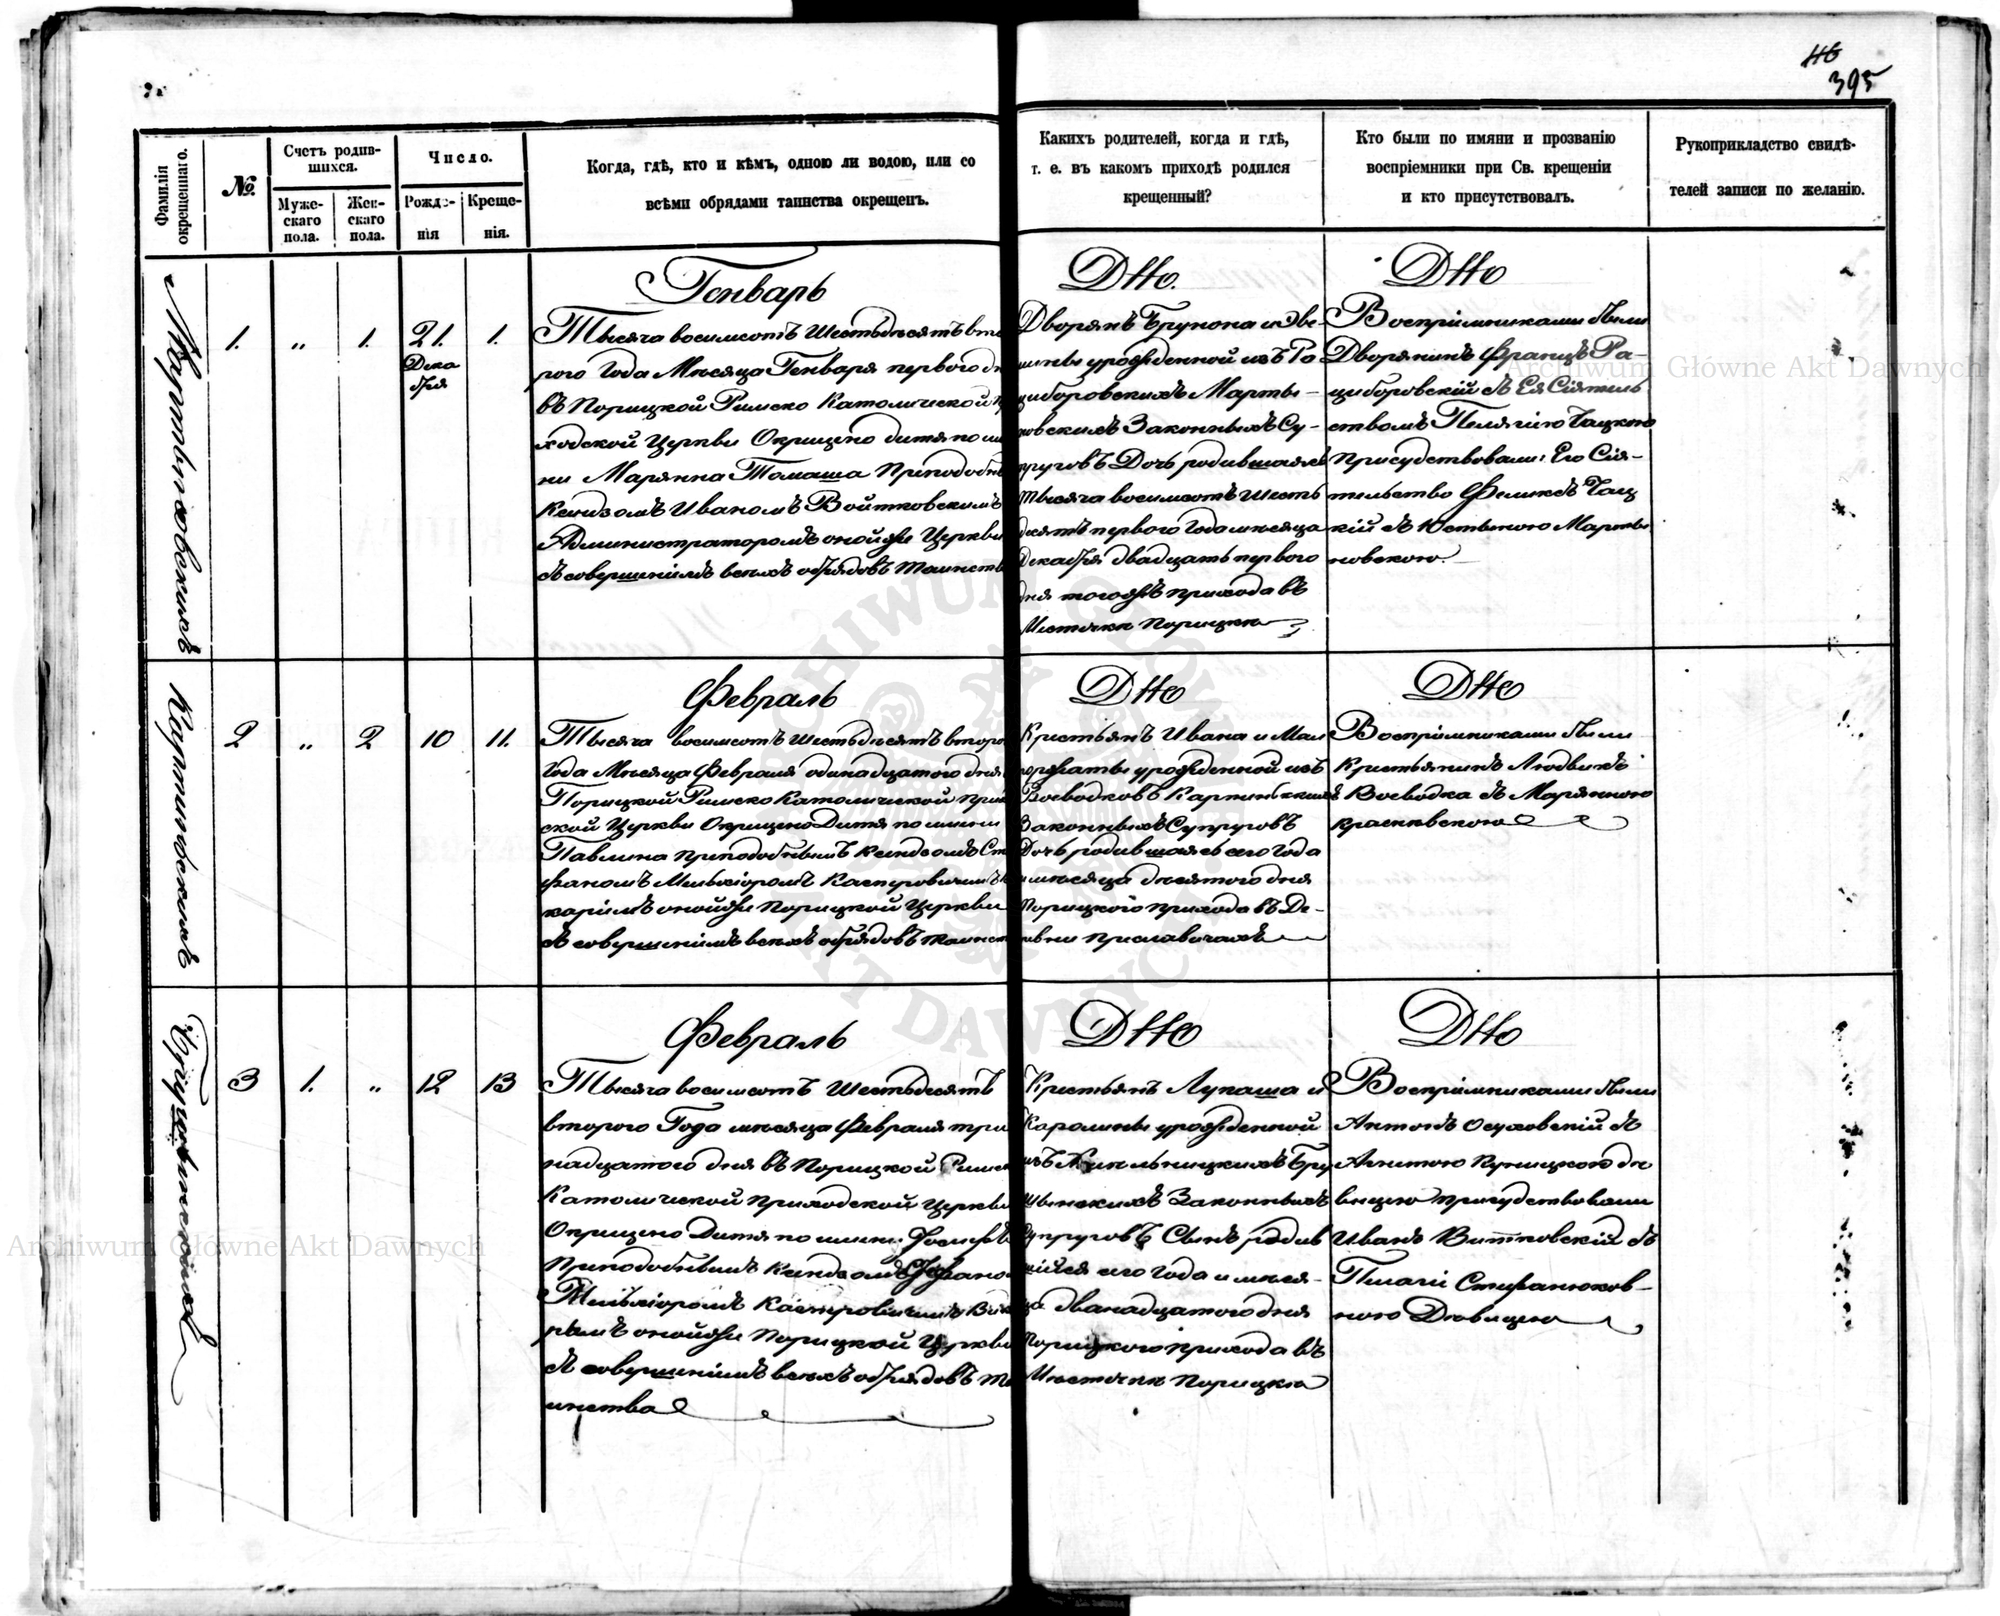 116
395
Фамилія окрещеннаго.
№.
Счетъ родив-
шихся.
Муже-
скаго
пола.
Жен-
скаго
пола.
Число.
Рожде-
нія
Креще-
нія.
Когда, гдѣ, кто и кѣмъ, одною ли водою, или со
всѣми обрядами таинства окрещенъ.
Какихъ родителей, когда и гдѣ,
т. е. въ какомъ приходѣ родился
крещенный?
Кто были по имяни и прозванію
воспріемники при Св. крещеніи
и кто присутствовалъ.
Рукоприкладство свидѣ-
телей записи по желанію.
Мартыновскихъ
1. „ 1. 21. Дека
бря 1.
Генварь
Тысяча восимсотъ Шестьдесятъ вто
рого Года Мѣсяца Генваря первого дн
въ Порицкой Римско Католической п
ходской Церкви Окрищено дитя по им
ни Марянна Томаша Приподобн
Ксендзомъ Иваномъ Войтковскимъ
Администраторомъ онойже Церкви
съ совершеніемъ всѣхъ обрядовъ таинств
Дтто.
Дворянъ Брунона и Эве-
лины урожденной изъ Ра
циборовскихъ Марты-
новскихъ Законныхъ Су-
пруговъ Дочь родившаяся
тысяча восимсотъ шесть
десятъ первого Года мѣсяца
Декабря двадцать первого
дня тогожъ прихода въ
Мѣстечкѣ Порицкѣ
Дтто
Воспріимниками были
Дворянинъ Францъ Ра-
циборовскій съ Ея Сіятель
ствомъ Пелягію Чацкою
присудствовали: Его Сія-
тельство Феликсъ Чац
кій съ Юстыною Марты
новскою.
Карпинскихъ
2 „ 2 10 11.
Февраль
Тысяча восимсотъ шестьдесятъ второ
Года Мѣсяца Февраля одинадцатого дня
Порицкой Римско Католической при
ской Церкви Окрищено Дитя по имени
Павлина приподобнымъ Ксендзомъ Сте
фаномъ Мельхіоромъ Касперовичемъ
каріемъ онойже Порицкой Церкви
съ совершеніемъ всѣхъ обрядовъ таинст
Дтто
Крестьянъ Ивана и Мал
горжаты урожденной изъ
Воеводковъ Карпинскихъ
Законныхъ Супруговъ
Дочь родившаяся сего Года
и мѣсяца десятого дня
Порицкого прихода въ Де-
ревни Приславичахъ
Дтто
Воспріимниками были
Крестьянинъ Людвикъ
Воеводка съ Марянною
Краснѣвскою
3 1. „ 12 13
Февраль
Тысяча восимсотъ Шестьдесятъ
второго Года мѣсяца Февраля три
надцатого дня въ Порицкой Римск
Католической Приходской Церкви
Окрищено Дитя по имени Іосифъ
Приподобнымъ Ксендзомъ Стефано
Мельхіоромъ Касперовичемъ Вика
рымъ онойже Порицкой Церкви
съ совершеніемъ всѣхъ обрядовъ та
инства
Дтто
Крестьянъ Лукаша и
Каролины урожденной
изъ Хмельницкихъ Гру
Законныхъ
Супруговъ Сынъ родив
шійся сего года и мѣся-
ца дванадцатого дня
Порицкого прихода въ
Мѣстечкѣ Порицкѣ
Дтто
Воспріимниками были
Антонъ Осуховскій съ
Анетою Куницкою дѣ
вицею присудствовали
Иванъ Витковскій съ
Пелагіи Стефанюков-
ною Дѣвицею
Archiwum Główne Akt Dawnych
Archiwum Główne Akt Dawnych
ARCHIWUM GŁÓWNE AKT DAWNYCH